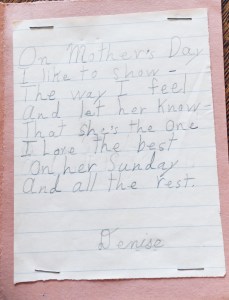 On Mother's Day
I like to show -
The way I feel
And let her know -
That she's the One
I Love the best
On her Sunday
And all the rest.
Denise